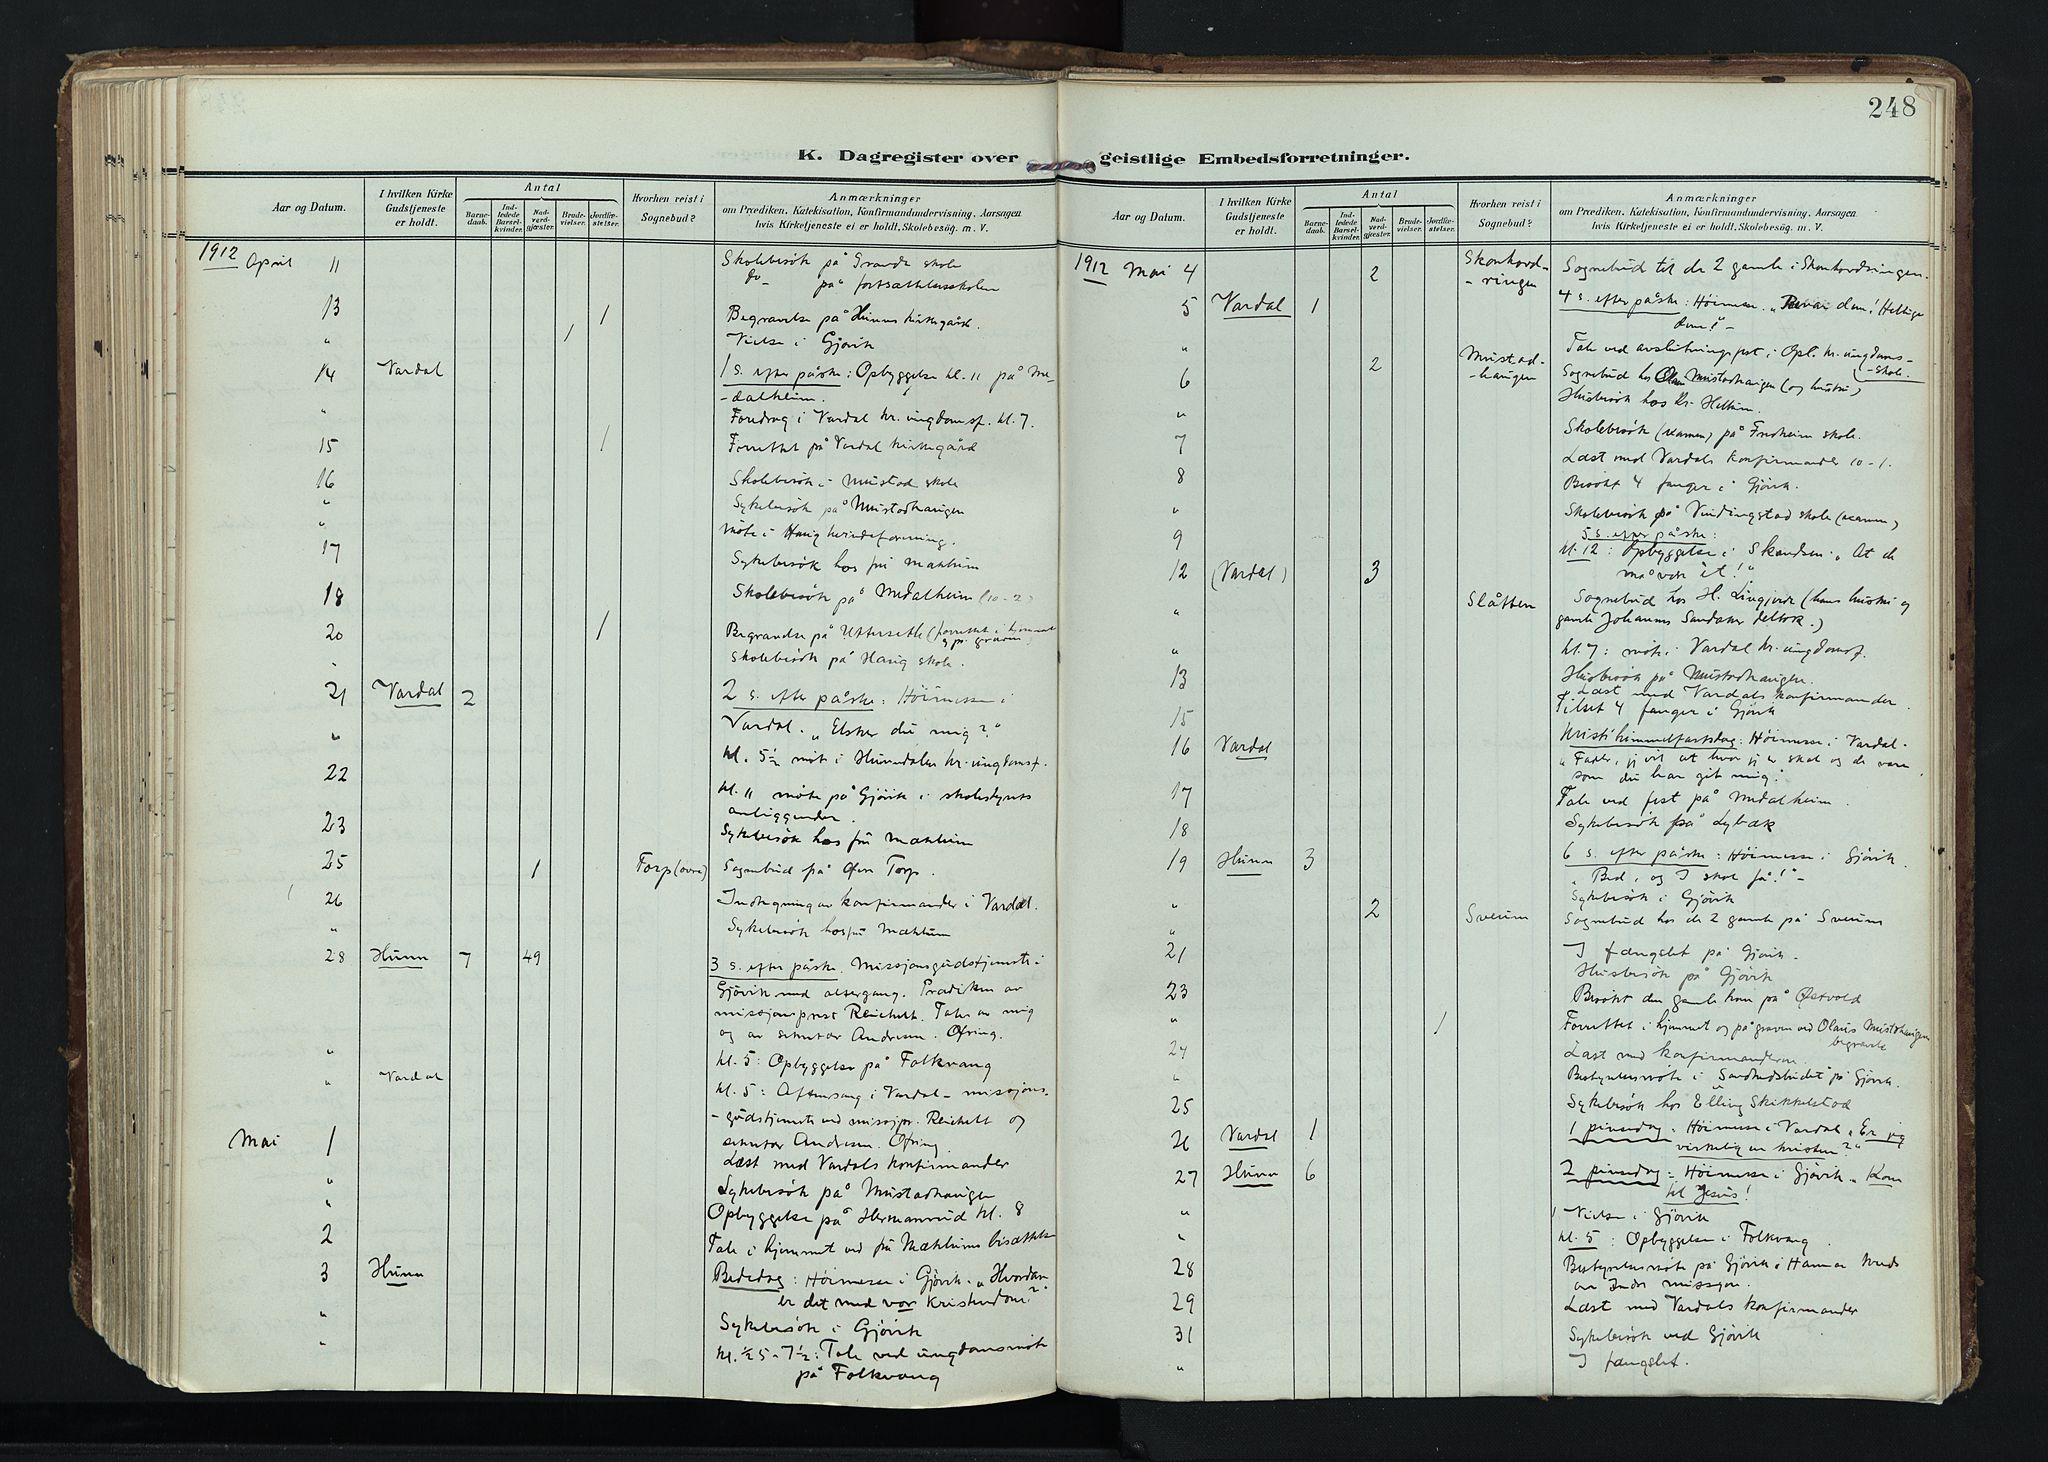 248
K. Dagregister over geistlige Embedsforretninger.
Aar og Datum.
I hvilken Kirke Gudstjeneste er holdt.
Antal
Barnedaab.
Indledede Barselkvinder.
Nadverdgjæster.
Brudevielser.
Jordfæstelser.
Hvorhen reist i Sognebud?
Anmærkninger
om Prædiken, Katekisation, Konfirmandundervisning, Aarsagen
hvis Kirketjeneste ei er holdt, Skolebesög m. V.
1912 April 11 Skolebesök på Grande skole
do - på fortsættelsesskolen
13 1 Begravelse på Hunns kirkegård.
" 1 Vielse i Gjövik
14 Vardal 1 s. efter påske: Opbyggelse kl. 11 på Me-
-dalheim.
" Foredrag i Vardal kr. ungdomsf. kl. 7.
15 1 Forrettet på Vardal kirkegård
16 Skolebesök i Mustad skole
" Sykebesök på Mustadhaugen
" möte i Haug kvindeforening.
17 Sykebesök hos fru Mæhlum
18 Skolebesök på Medalheim (10-2)
20 1 Begravelse på (forrettet i hjemmet og på graven)
Skolebesök på Haug skole.
21 Vardal 2 2 s. efter påske: Höimesse i
Vardal. "Elsker du mig?"
" kl. 5½ möte i Hunndalen kr. ungdomsf.
22 kl. 11 möte på Gjövik i skolestyrets
anliggender.
23 Sykebesök hos fru Mæhlum
25 1 Torp (övre) Sognebud på Övre Torp.
26 Indtegning av konfirmander i Vardal.
" Sykebesök hos fru Mæhlum
28 Hunn 7 49 3 s. efter påske. Missjonsgudstjeneste i
Gjövik med altergang. Prædiken av
missjonsprest Reichelt. Tale av mig
og av sekretær Andresen. Ofring.
" kl. 5: Opbyggelse på Folkvang
" Vardal kl. 5: Aftensang i Vardal - missjons-
-gudstjeneste ved missjpr. Reichelt og
sekretær Andresen. Ofring.
Mai 1 Læst med Vardals konfirmander
" Sykebesök på Mustadhaugen
" Opbyggelse på Hermanrud kl. 8
2 Tale i hjemmet ved fru Mæhlums bisættelse
3 Hunn Bededag: Höimesse i Gjövik. "Hvordan
er det med vor kristendom?"
" Sykebesök i Gjövik
" kl. ½5-7½: Tale ved ungdomsmöte
på Folkvang
Aar og Datum.
I hvilken Kirke Gudstjeneste er holdt.
Antal
Barnedaab.
Indledede Barselkvinder.
Nadverdgjæster.
Brudevielser.
Jordfæstelser.
Hvorhen reist i Sognebud?
Anmærkninger
om Prædiken, Katekisation, Konfirmandundervisning, Aarsagen
hvis Kirketjeneste ei er holdt, Skolebesög m. V.
1912 Mai 4 2 Sognebud til de 2 gamle i
5 Vardal 1 4 s. efter påske: Höimesse. "Bevar dem! Hellige
dem!" -
" Tale ved avslutningsfest i Opl. kr. ungdoms-
-skole.
6 2 Mustad-
-haugen Sognebud hos Olaus Mustadhaugen (og hustru)
" Husbesök hos Kr.
7 Skolebesök (examen) på Fredheim skole.
8 Læst med Vardals konfirmander 10-1.
" Besökt 4 fanger i Gjövik.
9 Skolebesök på Vindingstad skole (examen)
5 s. efter påske:
12 (Vardal) 3 kl. 12: Opbyggelse i "At de
må være ét!"
" Slåtten Sognebud hos H. (hans hustru og
gamle Johannes deltok.)
" kl. 7: möte i Vardal kr. ungdomsf.
13 Husbesök på Mustadhaugen.
" Læst med Vardals konfirmander.
15 Tilset 4 fanger i Gjövik
16 Vardal Kristi himmelfartsdag: Höimesse i Vardal.
"Fader, jeg vil at hvor jeg er skal og de være
som du har git mig".
17 Tale ved fest på Medalheim.
18 Sykebesök på Lybæk
19 Hunn 3 6 s. efter påske: Höimesse i Gjövik.
"Bed, og I skal få!" -
" Sykebesök i Gjövik
" 2 Sveum Sognebud hos de 2 gamle på Sveum
21 I fængslet på Gjövik.
Husbesök på Gjövik
23 Besökt den gamle kone på Østvold
" 1 Forrettet i hjemmet og på graven ved Olaus Mustadhaugens
begravelse
24 Læst med konfirmanderne.
" Bestyrelsesmöte i på Gjövik.
25 Sykebesök hos Elling Skikkelstad
26 Vardal 1 1 pinsedag. Höimesse i Vardal "Er jeg
virkelig en kristen?"
27 Hunn 6 2 pinsedag: Höimesse i Gjövik. "Kom
til Jesus!
" 1 Vielse i Gjövik
" kl. 5: Opbyggelse i Folkvang.
28 Bestyrelsesmöte på Gjövik i Hamar kreds
av Indre missjon.
29 Læst med Vardals konfirmander
31 Sykebesök ved Gjövik
" I fængslet.